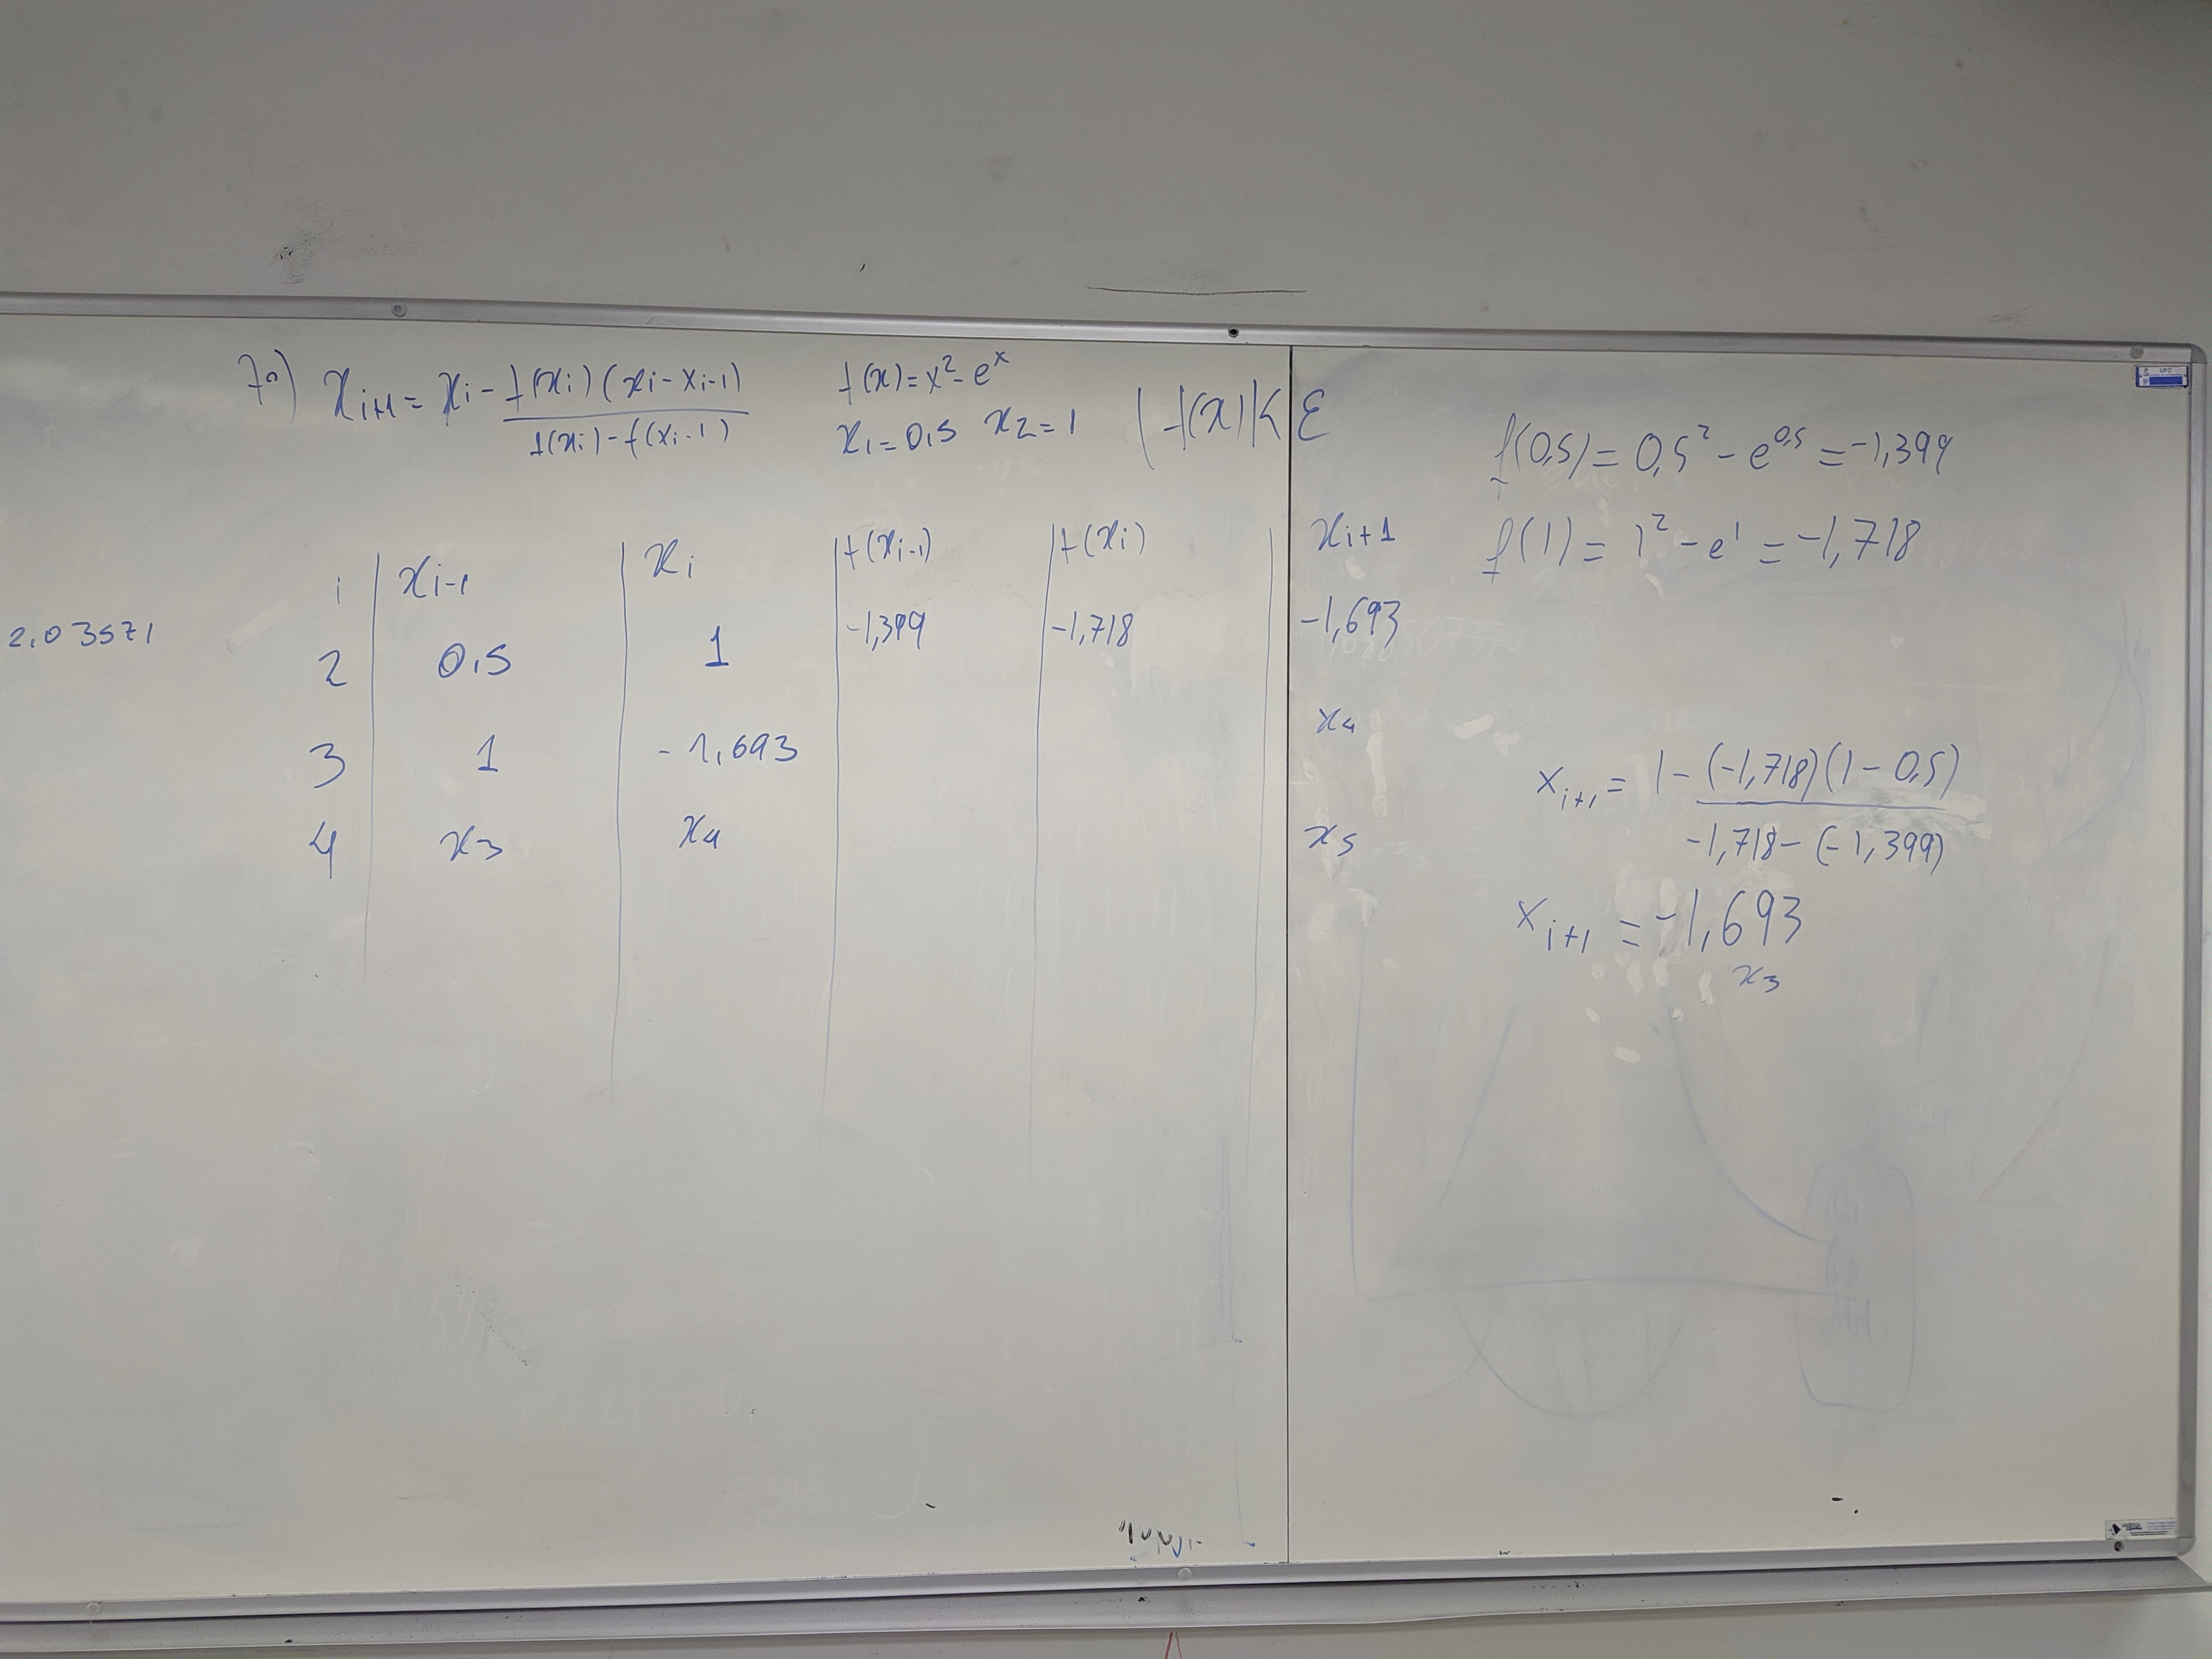 7º) xi+1 = xi - f(xi)(xi - xi-1)
f(xi) - f(xi-1)
f(x) = x² - eˣ
x1 = 0,5 x2 = 1 |f(x)| < ε
i xi-1 xi f(xi-1) f(xi) xi+1
2 0,5 1 -1,399 -1,718 -1,693
3 1 -1,693 x4
4 x3 x4 x5
2,03571
f(0,5) = 0,5² - e^0,5 = -1,399
f(1) = 1² - e¹ = -1,718
xi+1 = 1 - (-1,718)(1 - 0,5)
-1,718 - (-1,399)
xi+1 = -1,693
x3
UFC